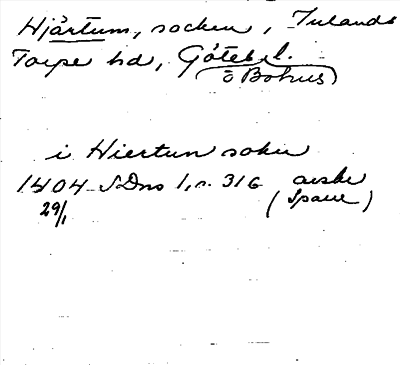 Hjärtum, socken, Inlands
Torpe hd, Göteb. l.
o Bohus
i Hiertun sokn
1404 SDns 1, s. 316 avskr
29/1 (Sparre)